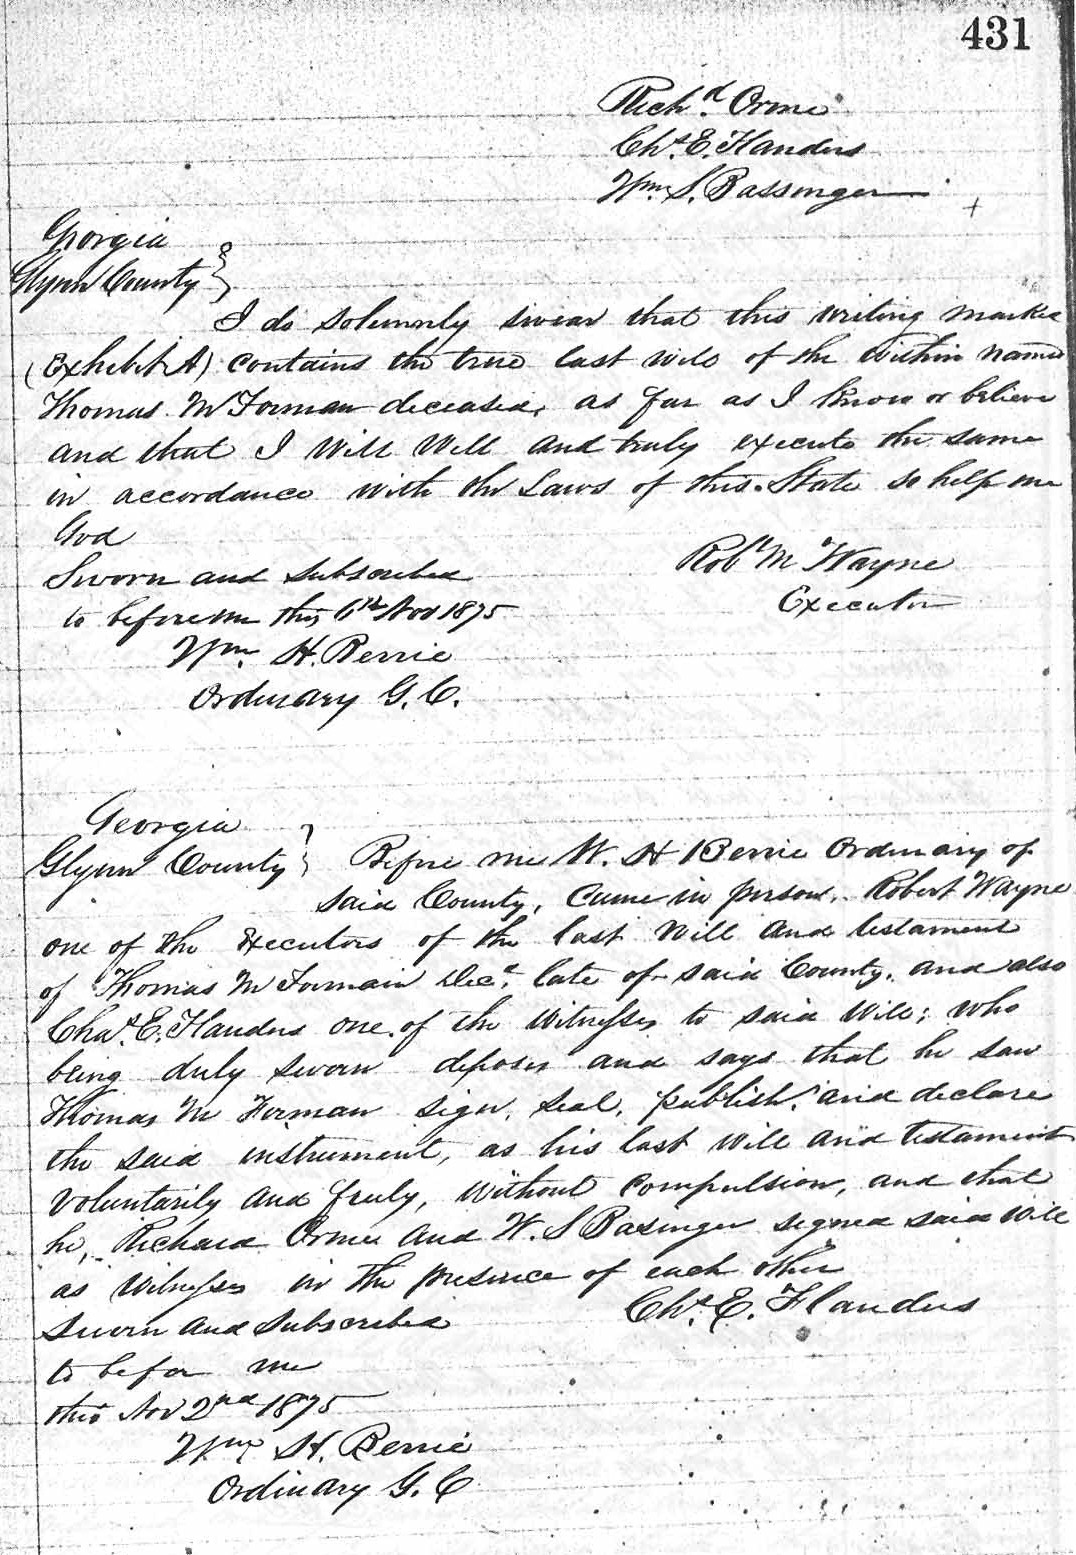 431
Rich.d Orme
Ch.s E. Flanders
Wm. S. Bassenger
Georgia
Glynn County }
I do solemnly swear that this writing marked
(Exhibit A) contains the true last will of the within named
Thomas M Forman deceased, as far as I know or believe
and that I will well and truly execute the same
in accordance with the Laws of this State so help me
God
Rob.t M Wayne
Sworn and subscribed
Executor
to before me this 6th Nov 1875
Wm. H. Berrie
Ordinary G. C.
Georgia
Glynn County } Before me W. H Berrie Ordinary of
said County, Came in person, Robert Wayne
one of the Executors of the last Will and testament
of Thomas M Formain Dec.d late of said County. and also
Cha.s E. Flanders one of the Witnesses to said Will; who
being duly sworn deposes and says that he saw
Thomas M Forman sign, seal, publish, and declare
the said instrument, as his last will and testament
Voluntarily and freely, without compulsion, and that
he, Richard Orme and W. S Basinger signed said Will
as Witnesses in the presence of each other
Ch.s E. Flanders
Sworn and subscribed
to befor me
this Nov 2nd 1875
Wm H. Berrie
Ordinary G. C